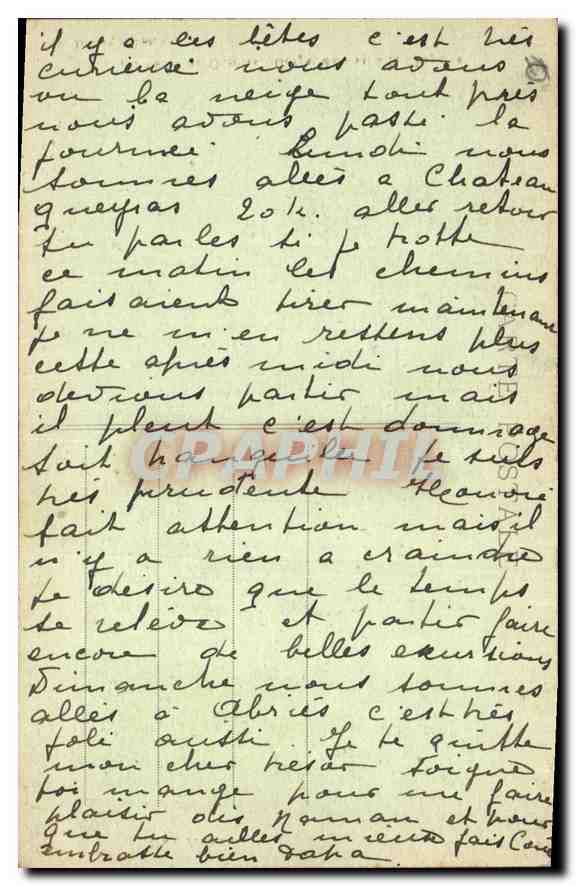 il y a les bêtes c'est très
curieuse nous avons
vu la neige tout près
nous avons passé la
journée. Lundi nous
sommes allés a Chateau
queyras 20 k. aller retour
tu parles si je trotte
ce matin les chemins
faisaient tirer maintenant
je ne m'en ressens plus
cette après midi nous
devions partir mais
il pleut c'est dommage
soit tranquille je suis
très prudente
fait attention mais il
n'y a rien a craindre
je desire que le temps
se relève et partir faire
encore de belles excursions
Dimanche nous sommes
allés à Abriès c'est très
joli aussi. Je te quitte
mon cher tresor soigne
toi mange pour me faire
plaisir dis maman et pour
que tu ailles mieux fais
embrasse bien papa
CARTE POSTALE
CPAPHIL